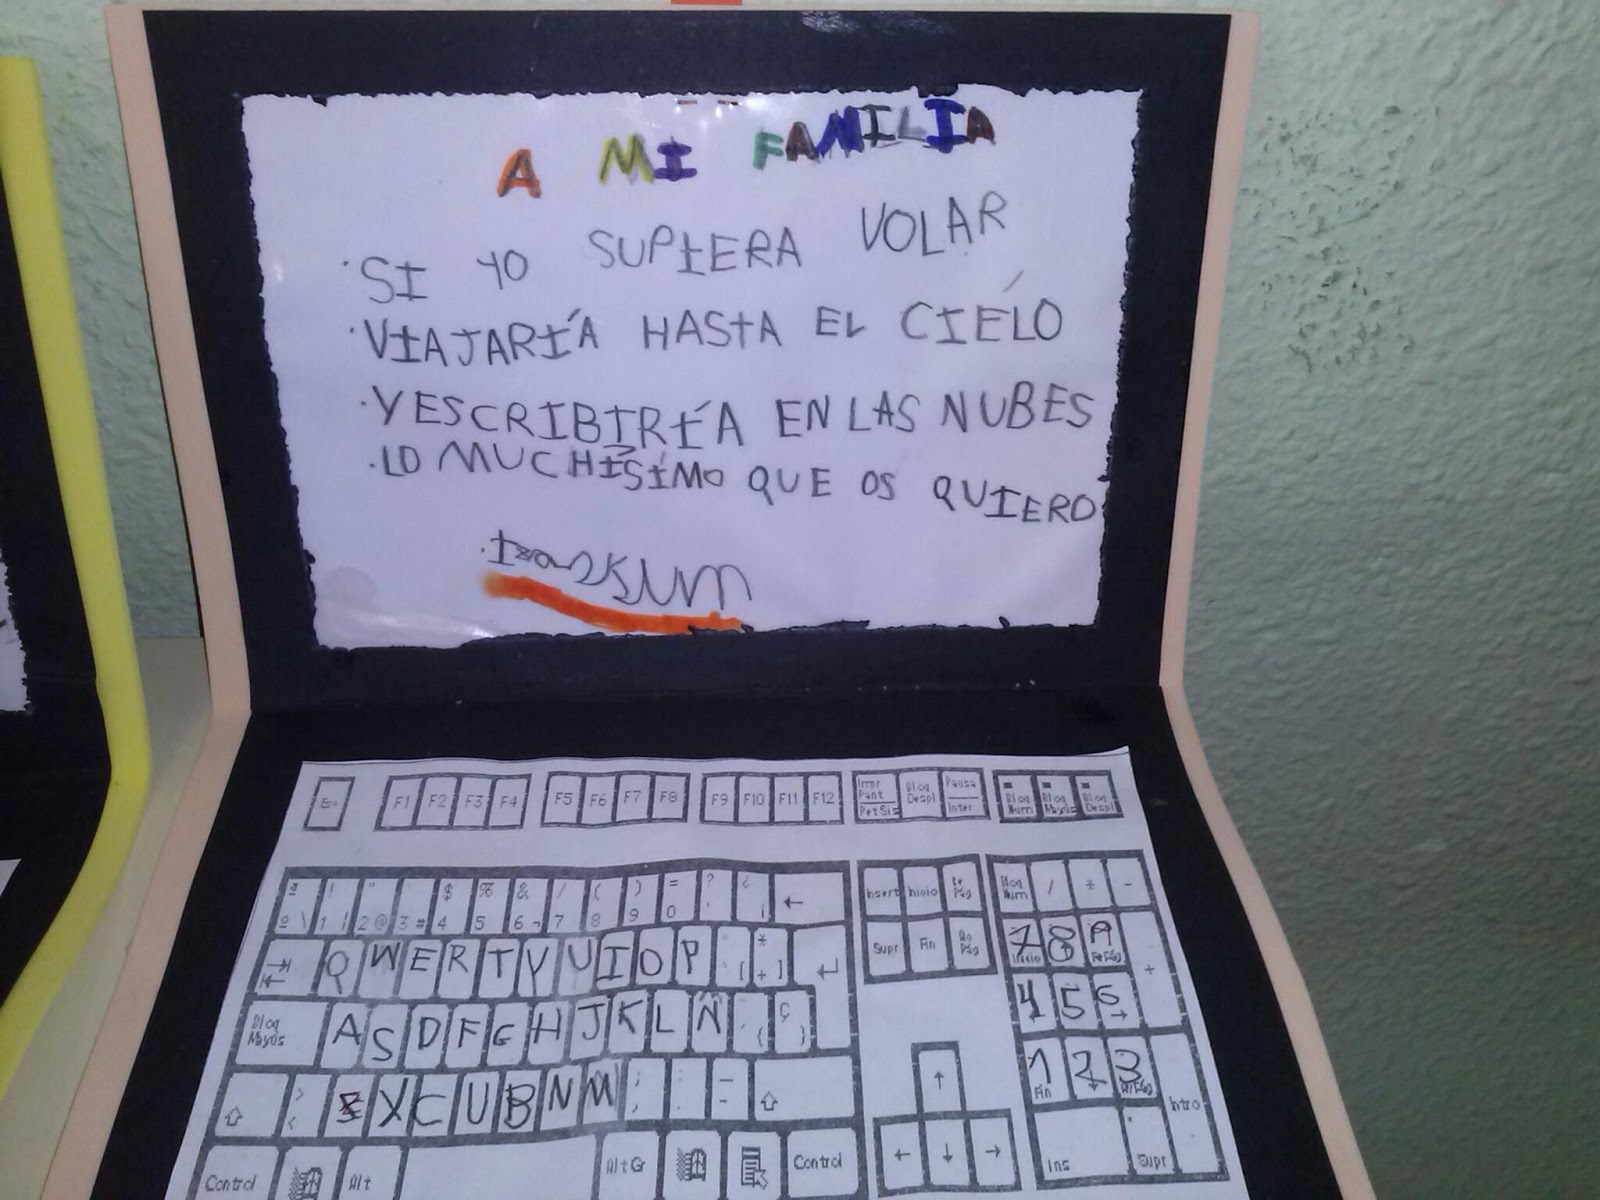 A MI FAMILIA
·SI YO SUPIERA VOLAR
·VIAJARÍA HASTA EL CIÉLO
·Y ESCRIBIRÍA EN LAS NUBES
·LO MUCHÍSIMO QUE OS QUIERO
F1 F2 F3 F4 F5 F6 F7 F8 F9 F10 F11 F12 Impr Pant PetSis Bloq Despl Pausa Inter Bloq Num Bloq Mayús Bloq Despl
ª º \ ! 1 " 2 @ · 3 # $ 4 % 5 & 6 ¬ / 7 ( 8 ) 9 = 0 ? ' ¿ ¡ ← Insert Inicio Re Pág Bloq Num / * -
Q W E R T Y U I O P [ * + ] Supr Fin Av Pág 7 Inicio 8 9 RePág +
Bloq Mayús A S D F G H J K L Ñ { Ç } 4 5 6 →
⇧ > < X C U B N M ; , : . _ - ⇧ ↑ 1 Fin 2 ↓ 3 AvPág Intro
Control Alt Alt Gr Control ← ↓ → Ins . Supr